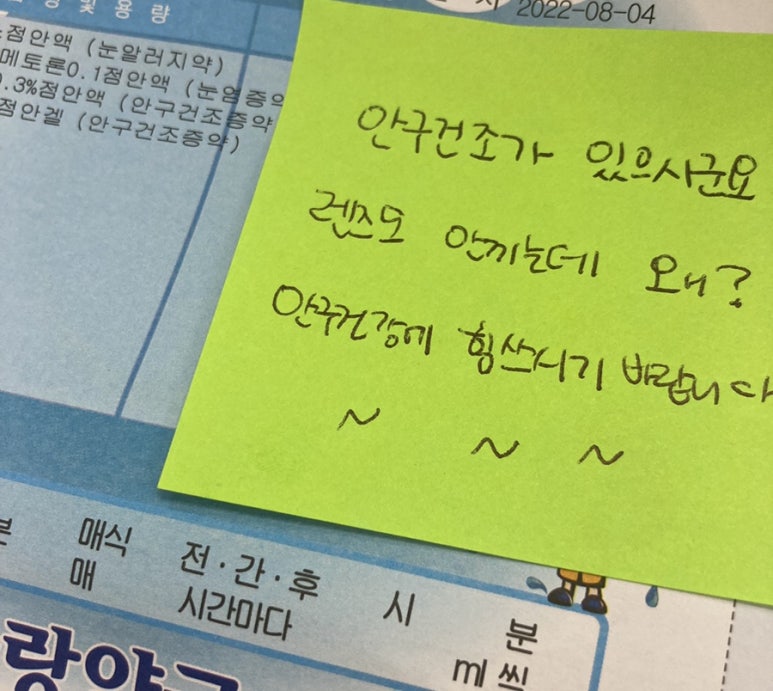 및 용 량
2022-08-04
점안액 (눈알러지약)
메토론0.1점안액 (눈염증약
.3%점안액 (안구건조증약
점안겔 (안구건조증약)
안구건조가 있으시군요
렌즈도 안끼는데 왜?
안구건강에 힘쓰시기 바랍니다
~ ~ ~
매식 전·간·후 시 분
매 시간마다 ml 씩
랑약국